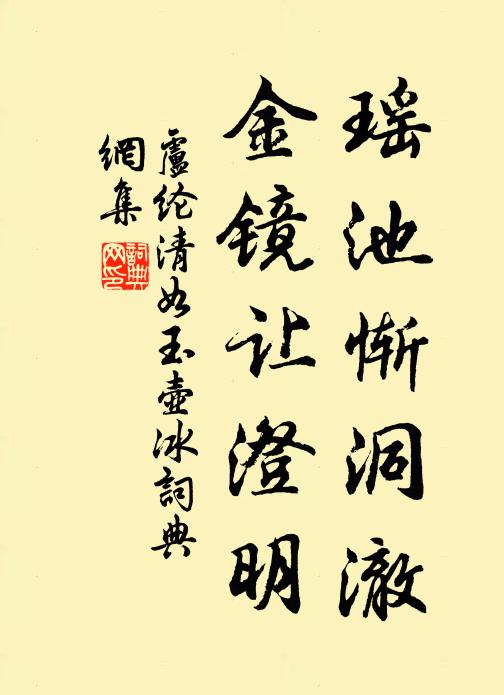 瑶池惭洞澈
金镜让澄明
盧纶清如玉壶冰詞典
網集
詞典网印